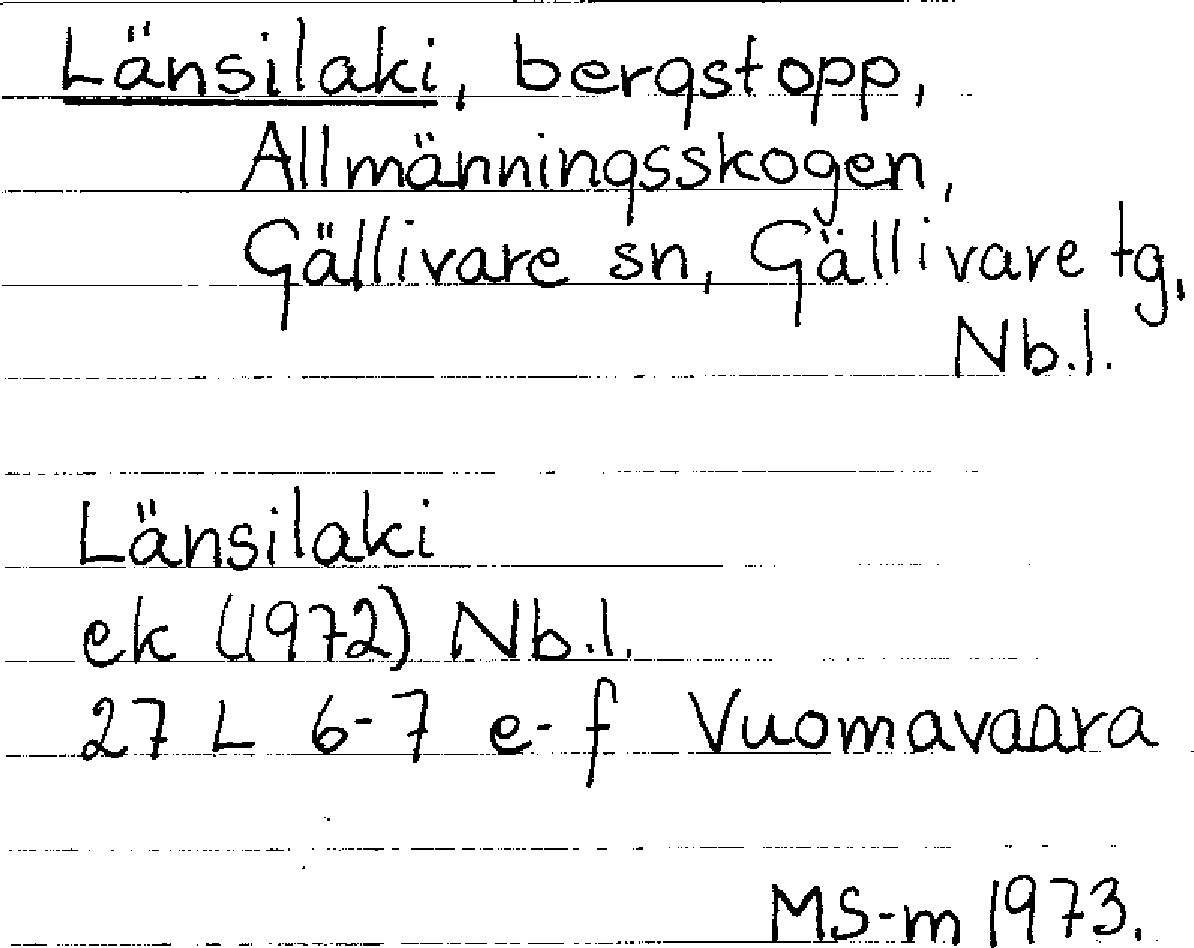 Länsilaki, bergstopp,
Allmänningsskogen,
Gällivare sn, Gällivare tg,
Nb.l.
Länsilaki
ek (1972) Nb.l.
27 L 6-7 e-f Vuomavaara
MS-m 1973.